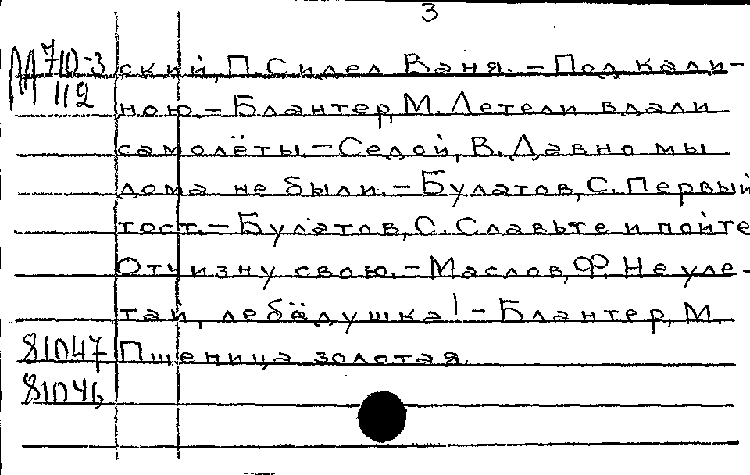 3
М 710-3 ский, П. Сидел Ваня. – Под кали-
112 ною. – Блантер, М. Летели вдали
самолёты. – Седой, В. Давно мы
дома не были. – Булатов, С. Первый
тост. – Булатов, С. Славьте и пойте
Отчизну свою. – Маслов, Ф. Не уле-
тай, лебёдушка! – Блантер, М.
81047 Пшеница золотая.
81046